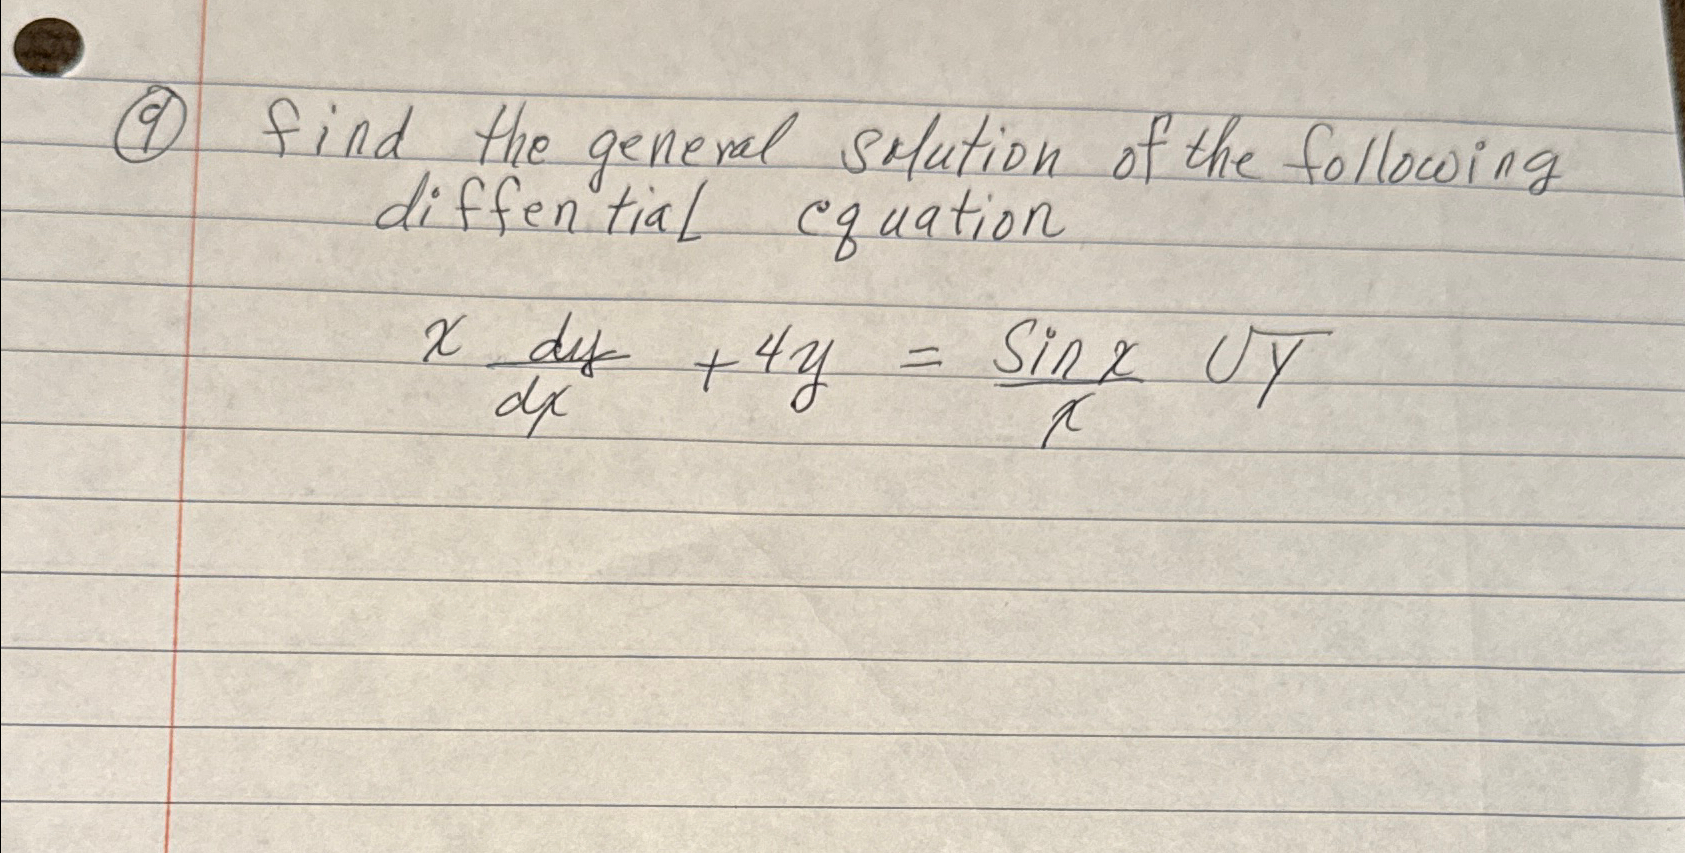 9 find the general solution of the following
diffential equation
x dy/dx + 4y = Sin x/x √y